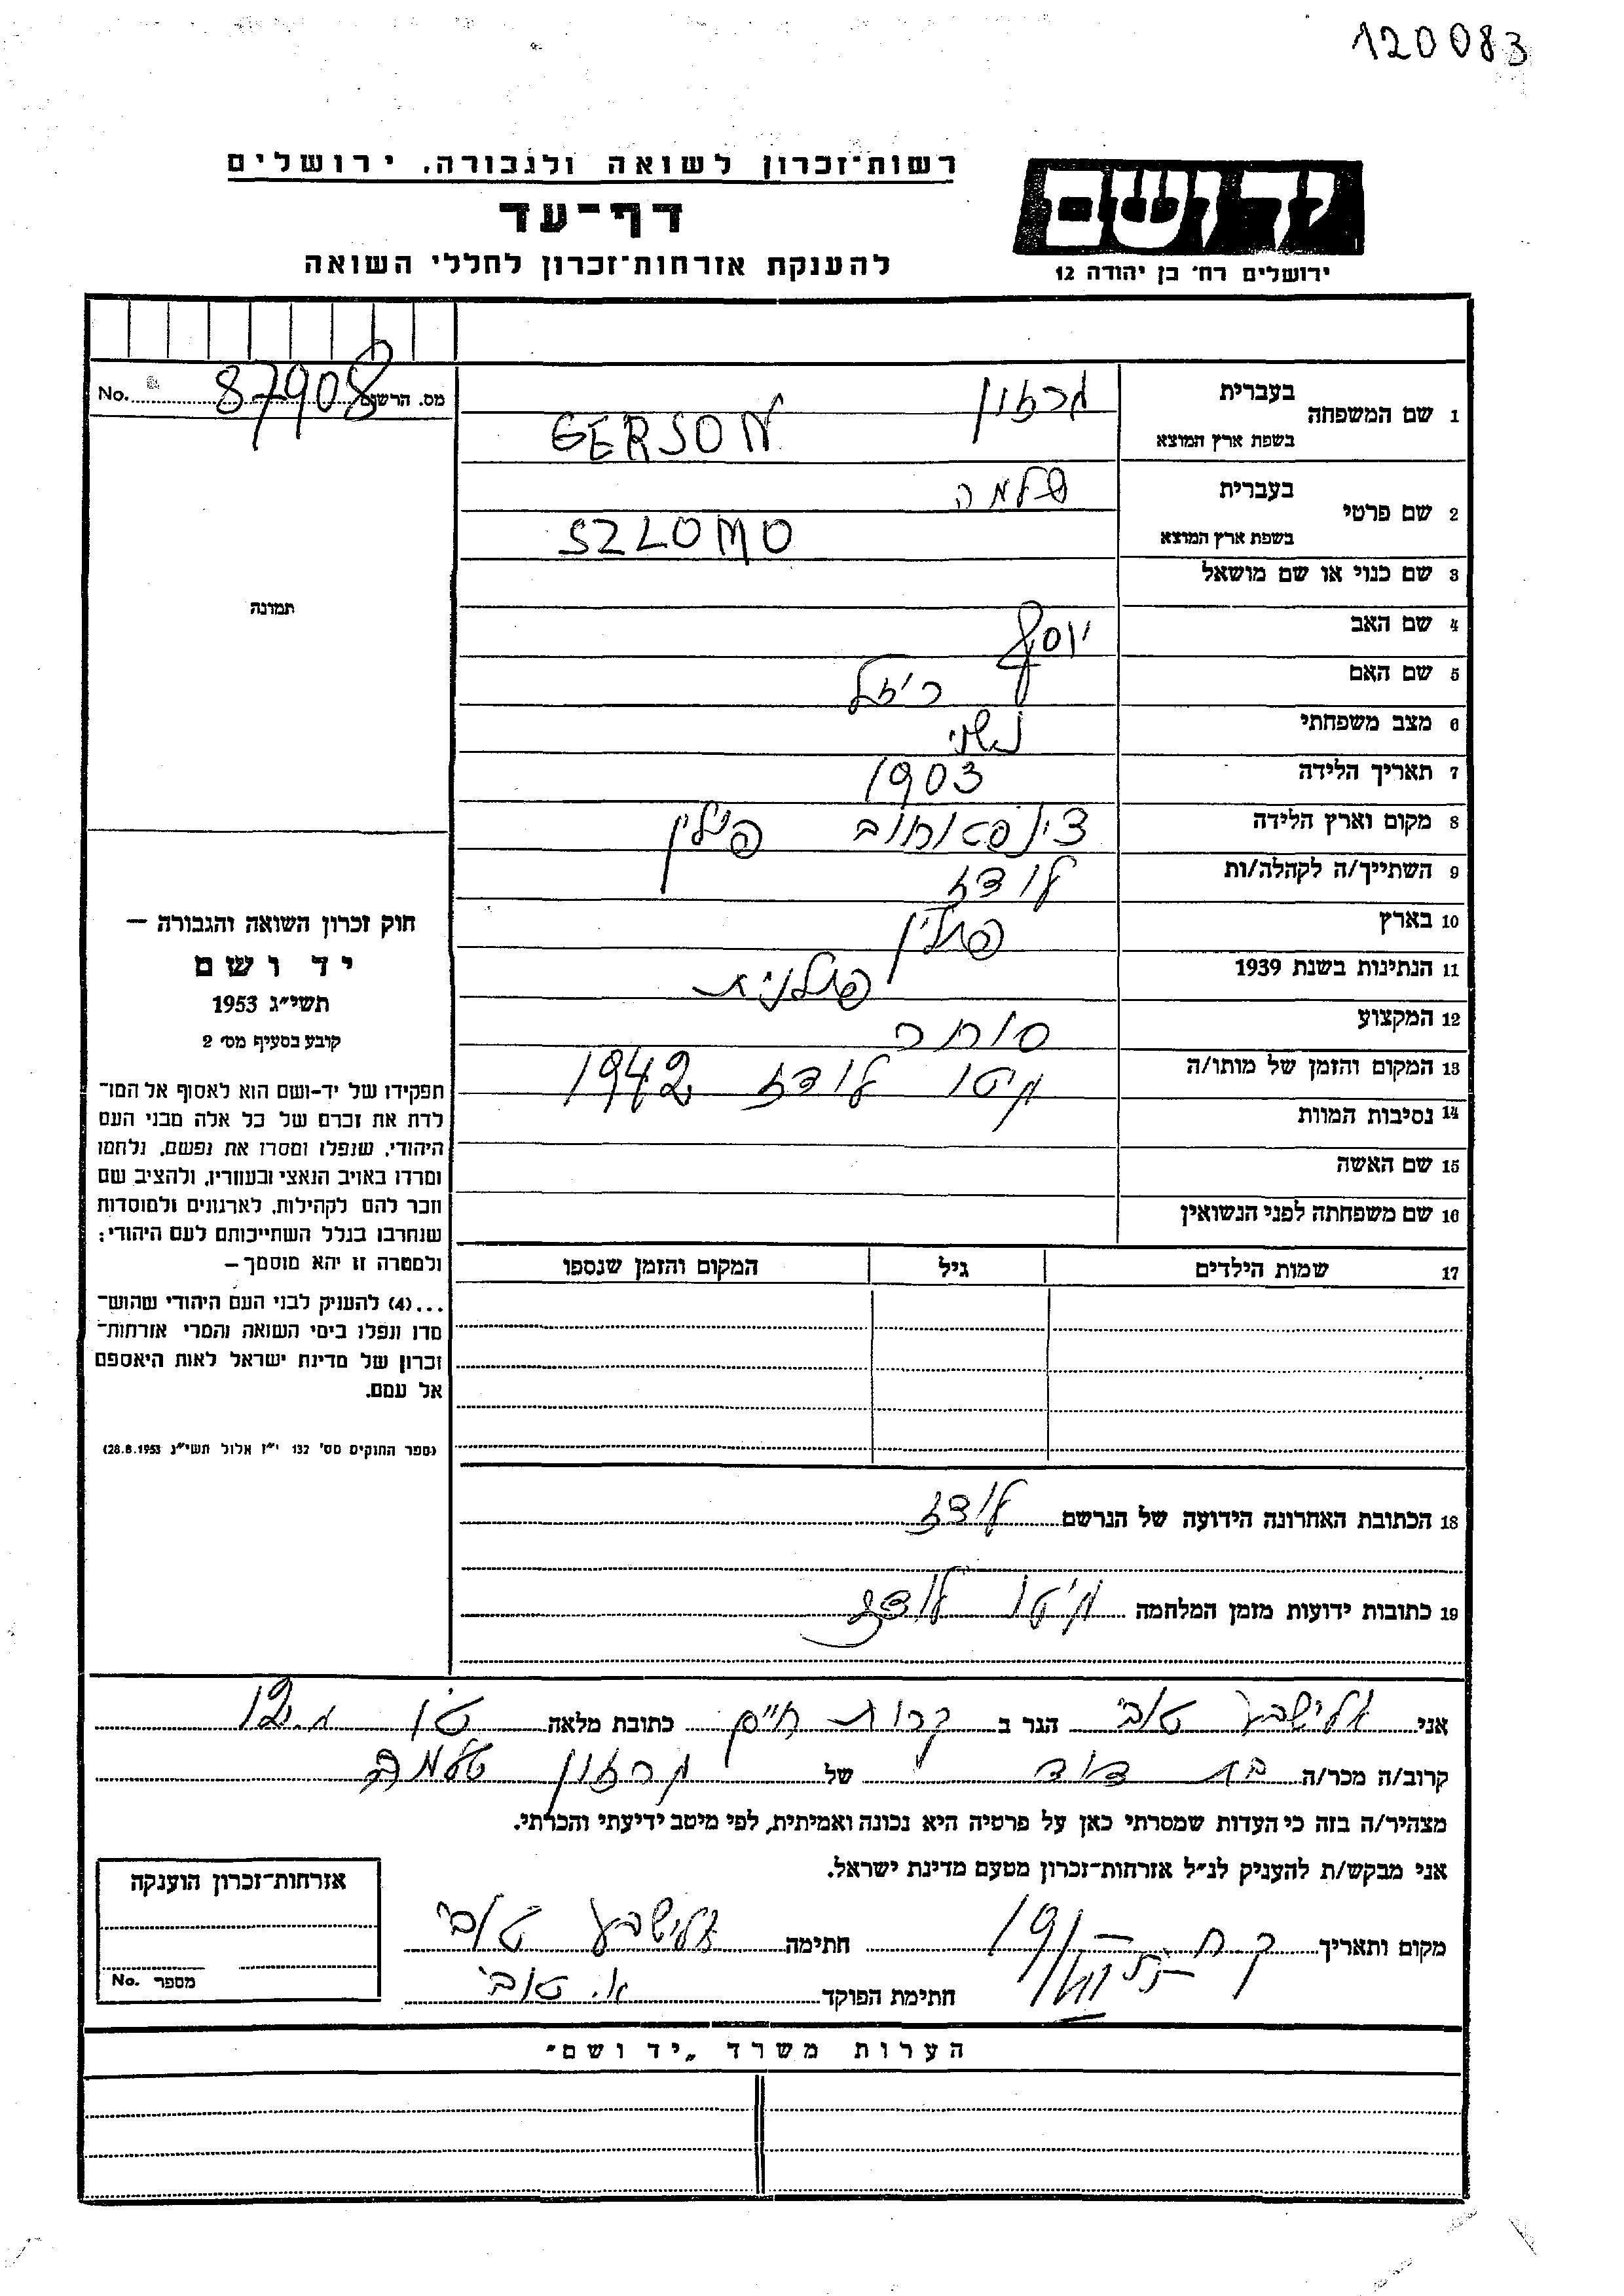 120083
רשות־זכרון לשואה ולגבורה, ירושלים
דף־עד
להענקת אזרחות־זכרון לחללי השואה
יד ושם
ירושלים רח׳ בן יהודה 12
מס. הרשום 87908 No.
תמונה
חוק זכרון השואה והגבורה —
יד ושם
תשי״ג 1953
קובע בסעיף מס׳ 2
תפקידו של יד-ושם הוא לאסוף אל המו־
לדת את זכרם של כל אלה מבני העם
היהודי, שנפלו ומסרו את נפשם, נלחמו
ומרדו באויב הנאצי ובעוזריו, ולהציב שם
וזכר להם לקהילות, לארגונים ולמוסדות
שנחרבו בגלל השתייכותם לעם היהודי;
ולמטרה זו יהא מוסמך —
...(4) להעניק לבני העם היהודי שהוש־
מדו ונפלו בימי השואה והמרי אזרחות־
זכרון של מדינת ישראל לאות היאספם
אל עמם.
(ספר החוקים מס׳ 132 י״ז אלול תשי״ג 28.8.1953)
1 שם המשפחה בעברית גרזון
בשפת ארץ המוצא GERSON
2 שם פרטי בעברית שלמה
בשפת ארץ המוצא SZLOMO
3 שם כנוי או שם מושאל
4 שם האב יוסף
5 שם האם רייזל
6 מצב משפחתי נשוי
7 תאריך הלידה 1903
8 מקום וארץ הלידה פולין
9 השתייך/ה לקהלה/ות לודז
10 בארץ פולין
11 הנתינות בשנת 1939 פולנית
12 המקצוע סוחר
13 המקום והזמן של מותו/ה גיטו לודז 1942
14 נסיבות המוות
15 שם האשה
16 שם משפחתה לפני הנשואין
17 שמות הילדים גיל המקום והזמן שנספו
18 הכתובת האחרונה הידועה של הנרשם לודז
19 כתובות ידועות מזמן המלחמה גיטו לודז
אני אלישבע טובי הגר ב קרית חיים כתובת מלאה
קרוב/ה מכר/ה בת דוד של גרזון שלמה
מצהיר/ה בזה כי העדות שמסרתי כאן על פרטיה היא נכונה ואמיתית, לפי מיטב ידיעתי והכרתי.
אני מבקש/ת להעניק לנ״ל אזרחות־זכרון מטעם מדינת ישראל.
מקום ותאריך ק. ח. חתימה אלישבע טובי
חתימת הפוקד א. טובי
אזרחות־זכרון הוענקה
מספר No.
הערות משרד „יד ושם״